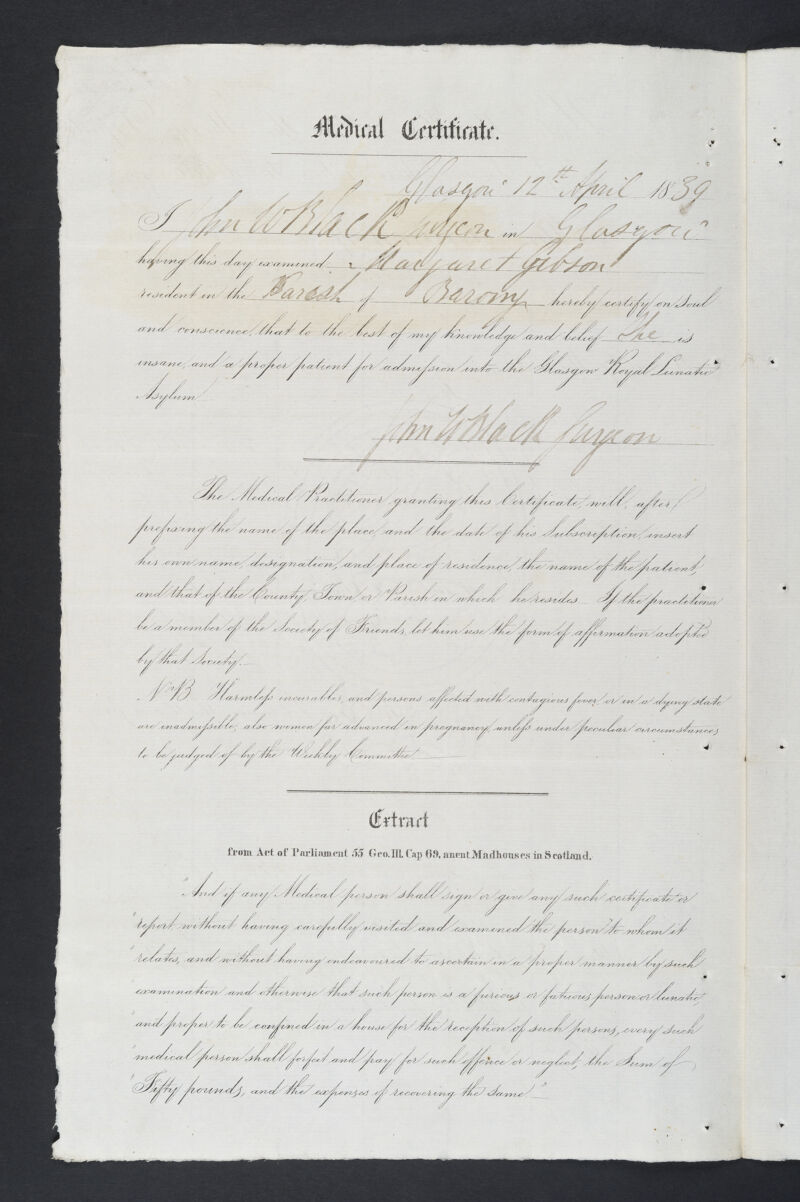 Medical Certificate.
Glasgow 12th April 1839
I John W Black Surgeon in Glasgow
having this day examined Margaret Gibson
resident in the Parish of Barony hereby certify on soul
and conscience, that to the best of my knowledge and belief She is
insane, and a proper patient for admission into the Glasgow Royal Lunatic
Asylum
John W Black Surgeon
The Medical Practitioner granting this Certificate, will, after
prefixing the name of the place, and the date of his Subscription, insert
his own name, designation, and place of residence, the name of the patient,
and that of the County, Town or Parish in which he resides. If the practitioner
be a member of the Society of Friends, let him use the form of affirmation adopted
by that Society.
N.B. Harmless incurables, and persons affected with contagious fever, or in a dying state
are inadmissible, also women far advanced in pregnancy, unless under peculiar circumstances,
to be judged of by the Weekly Committee
Extract
from Act of Parliament 55 Geo. III. Cap 69, anent Madhouses in Scotland.
"And if any Medical person shall sign or give any such certificate or
"report without having carefully visited and examined the person to whom it
"relates, and without having endeavoured to ascertain in a proper manner by such
"examination and otherwise that such person is a furious or fatuous person or lunatic,
"and proper to be confined in a house for the reception of such persons, every such
"medical person shall forfeit and pay for such offence or neglect, the Sum of
"Fifty pounds, and the expenses of recovering the same."